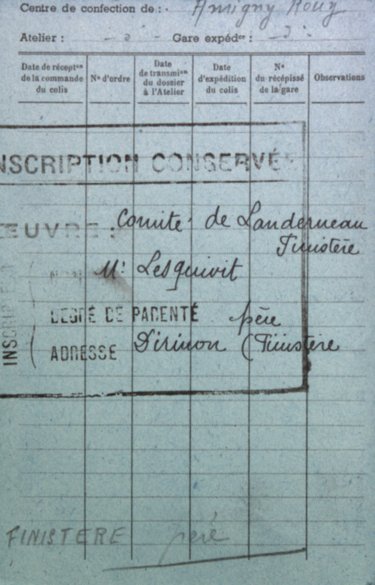 Centre de confection de :
Atelier : Gare expédre :
Date de récepton de la commande du colis
N° d'ordre
Date de transmion du dossier à l'Atelier
Date d'expédition du colis
N° du récépissé de la gare
Observations
INSCRIPTION CONSERVÉE
ŒUVRE : Comité de Landerneau
Finistère
NOM Mr Lesquivit
DEGRÉ DE PARENTÉ père
ADRESSE Dirinon (Finistère
FINISTERE père